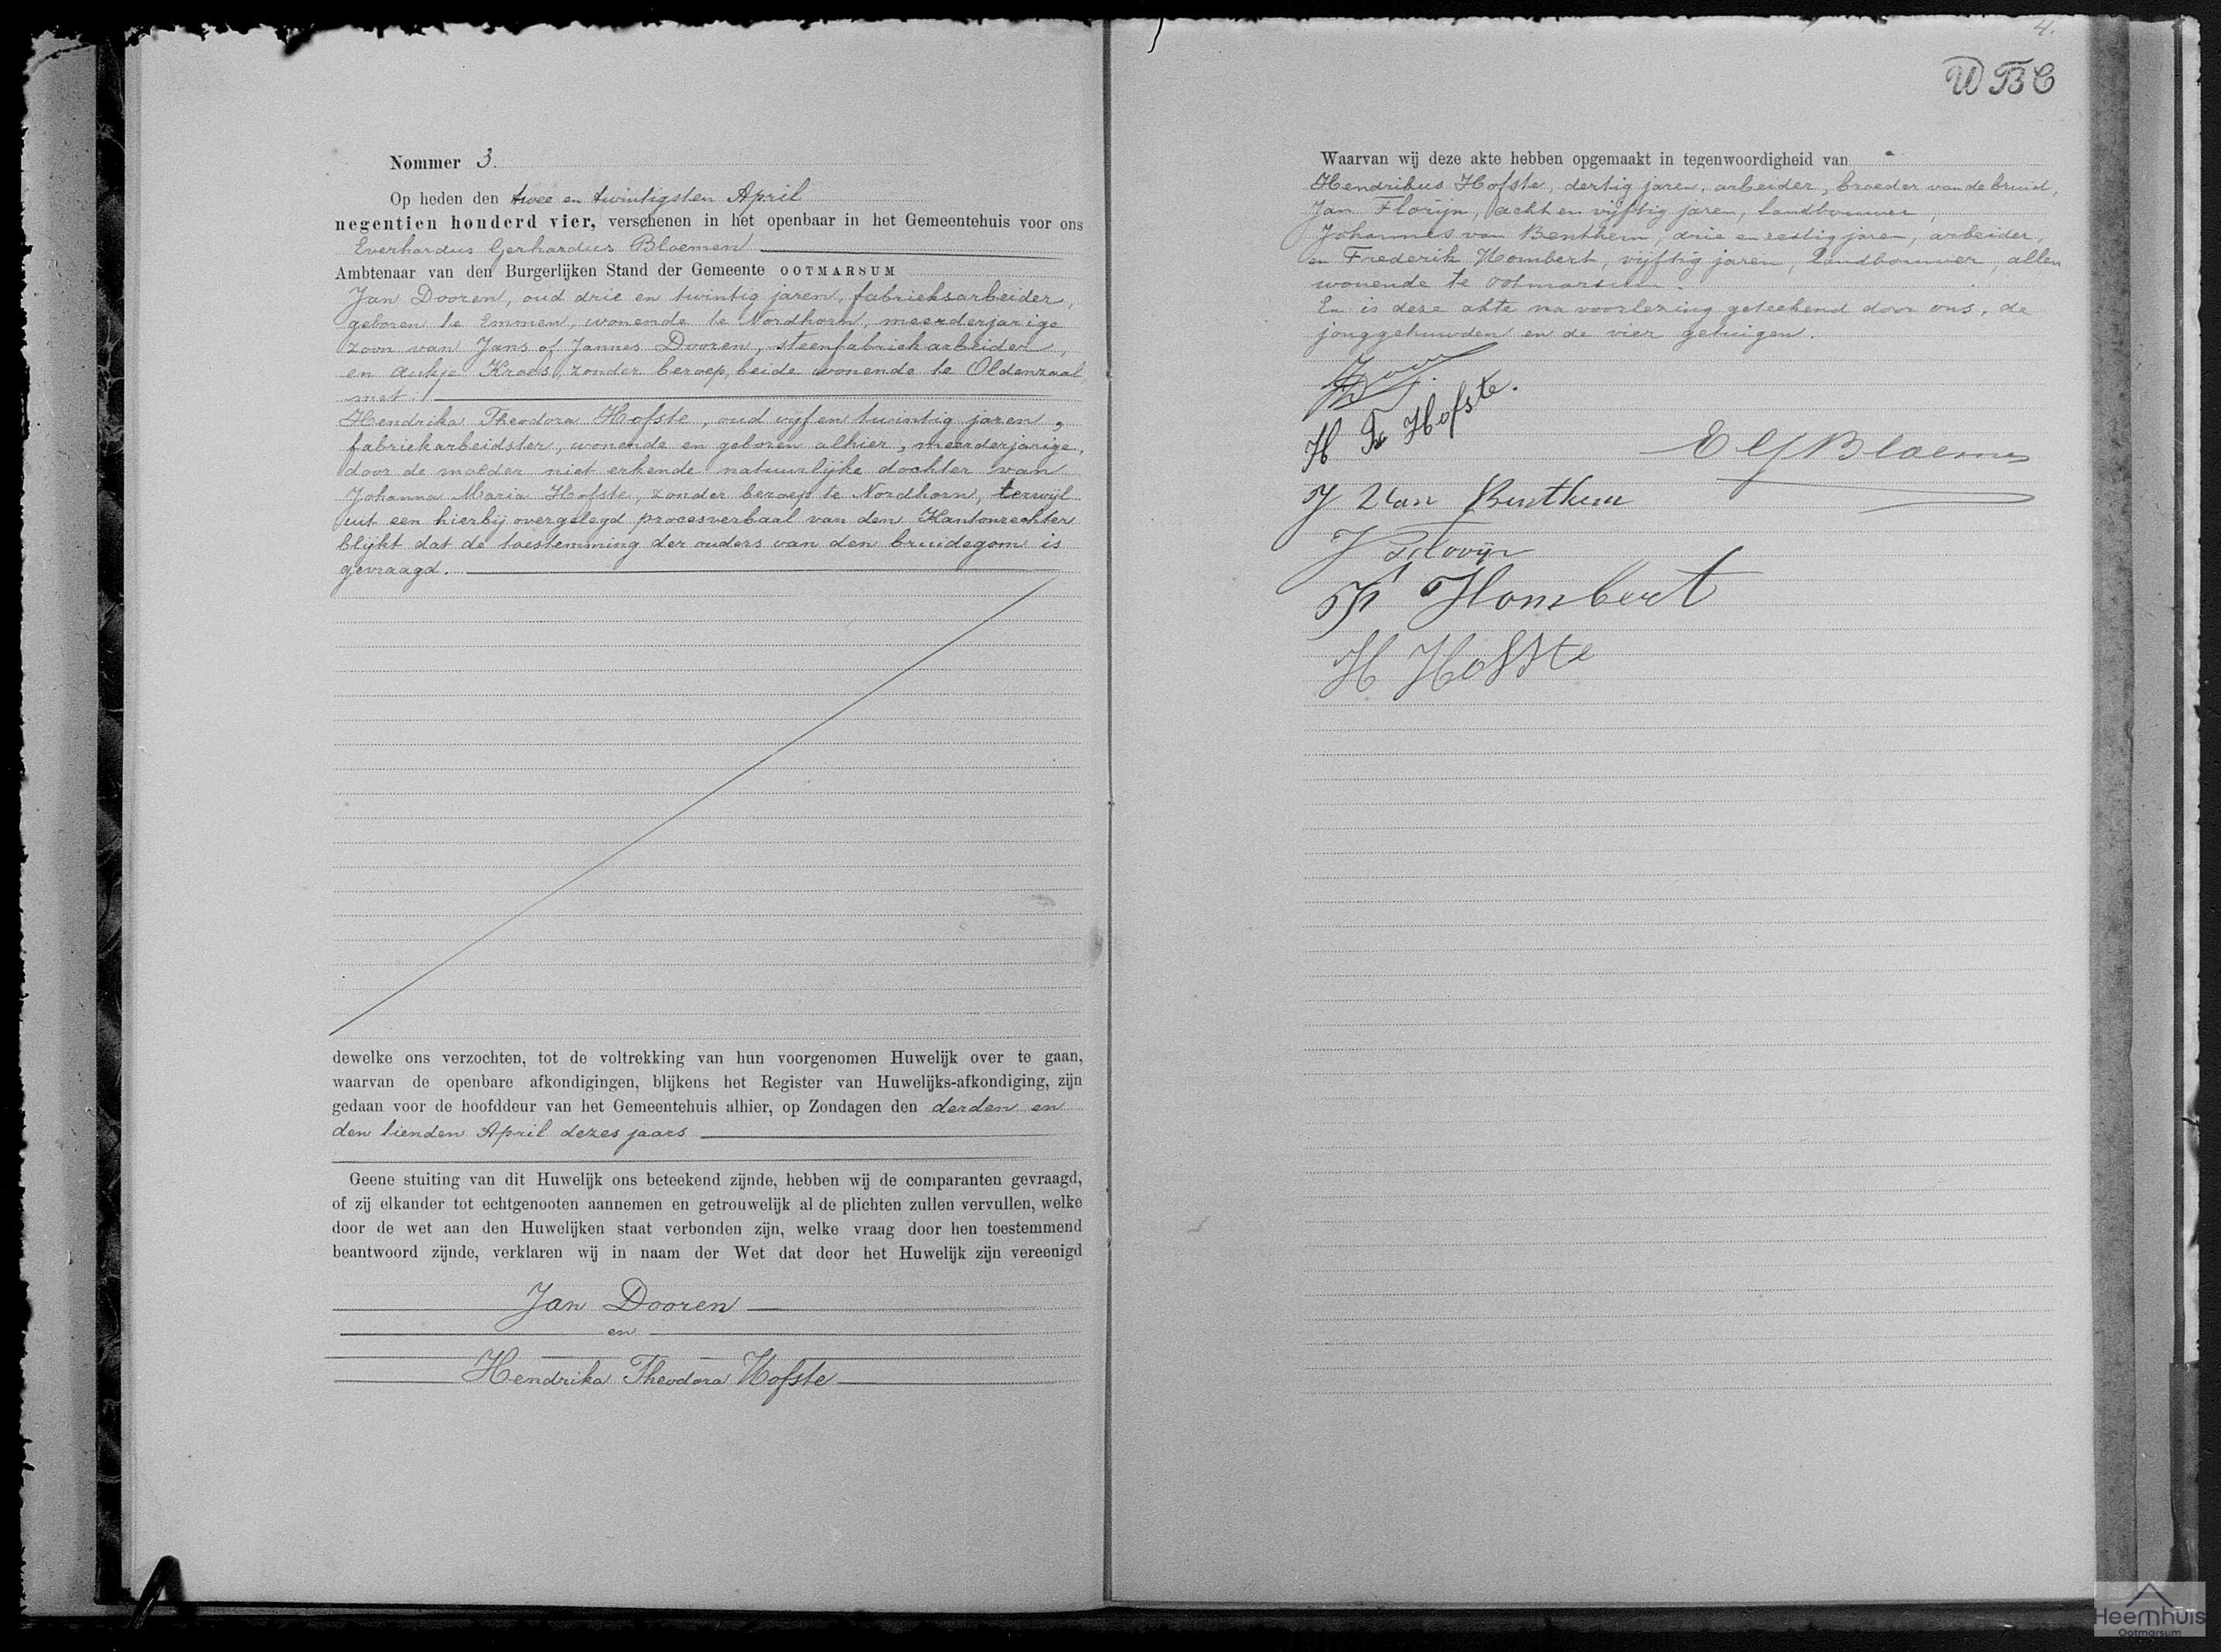 Nommer 3.
Op heden den twee en twintigsten April
negentien honderd vier, verschenen in het openbaar in het Gemeentehuis voor ons
Everhardus Gerhardus Bloemen
Ambtenaar van den Burgerlijken Stand der Gemeente OOTMARSUM
Jan Dooren, oud drie en twintig jaren, fabrieksarbeider,
geboren te Emmen, wonende te Nordhorn, meerderjarige
zoon van Jans of Jannes Dooren, steenfabriekarbeider,
en Aukje Kroes, zonder beroep, beide wonende te Oldenzaal,
met:
Hendrika Theodora Hofste, oud vijf en twintig jaren,
fabriekarbeidster, wonende en geboren alhier, meerderjarige,
door de moeder niet erkende natuurlijke dochter van
Johanna Maria Hofste, zonder beroep te Nordhorn, terwijl
uit een hierbij overgelegd procesverbaal van den Kantonrechter
blijkt dat de toestemming der ouders van den bruidegom is
gevraagd.
dewelke ons verzochten, tot de voltrekking van hun voorgenomen Huwelijk over te gaan,
waarvan de openbare afkondigingen, blijkens het Register van Huwelijks-afkondiging, zijn
gedaan voor de hoofddeur van het Gemeentehuis alhier, op Zondagen den derden en
den tienden April dezes jaars
Geene stuiting van dit Huwelijk ons beteekend zijnde, hebben wij de comparanten gevraagd,
of zij elkander tot echtgenooten aannemen en getrouwelijk al de plichten zullen vervullen, welke
door de wet aan den Huwelijken staat verbonden zijn, welke vraag door hen toestemmend
beantwoord zijnde, verklaren wij in naam der Wet dat door het Huwelijk zijn vereenigd
Jan Dooren
en
Hendrika Theodora Hofste
4.
Waarvan wij deze akte hebben opgemaakt in tegenwoordigheid van
Hendrikus Hofste, dertig jaren, arbeider, broeder van de bruid,
Jan Florijn, acht en vijftig jaren, landbouwer,
Johannes van Benthem, drie en zestig jaren, arbeider,
en Frederik Hombert, vijftig jaren, landbouwer, allen
wonende te Ootmarsum.
En is deze akte na voorlezing geteekend door ons, de
jonggehuwden en de vier getuigen.
H Th Hofste.
E G Bloemen
J Van Benthem
J Florijn
F Hombert
H Hofste
Heemhuis
Ootmarsum